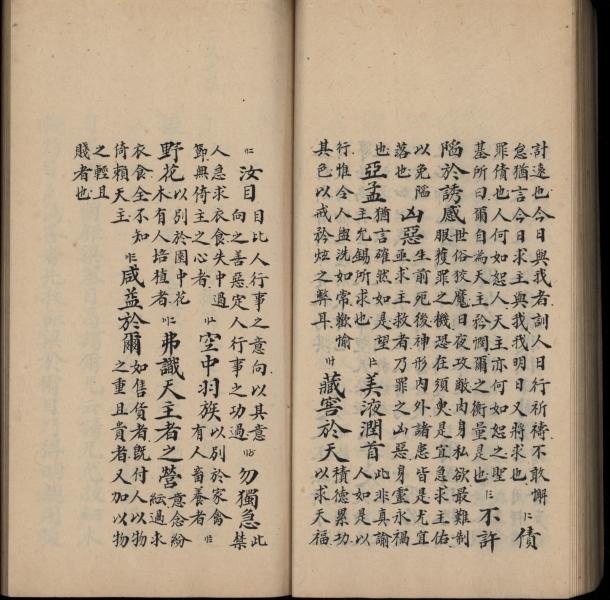 討遠也今日與我者訓人日行祈禱不敢懈
怠猶言今日求主與我我明日又將求也
債
罪債也人何如恕人天主亦何如恕之聖
基所曰爾自為天主矜憫爾之衡量是也
不許
陷於誘感
世俗狡魔日夜攻敵內身私欲最難制
服獲罪之機恐在須臾是宜急求主佑
以免陷
落也
凶惡
生前死後神形內外諸患皆是尤宜
亟求主救者乃罪之凶惡身靈永禍
也
亞孟
猶言確然如是望
主允錫所求也
美液潤首
此非真諭
人如是以
行惟令人盥洗如常歡愉
其色以戒矜炫之弊耳
藏窖於天
積德累功
以求天福
汝目
目比人行事之意向以其意
向之善惡定人行事之功過
勿獨急
此
禁
人急求衣食失中過
節無倚主之心者
空中羽族
以別於家禽
有人畜養者
野花
以別於園中花
木有人培植者
弗識天主者之營
意念紛
紜過求
衣食全不知
倚賴天主
咸益於爾
如售貨者既付人以物
之重且貴者又加以物
之輕且
賤者也